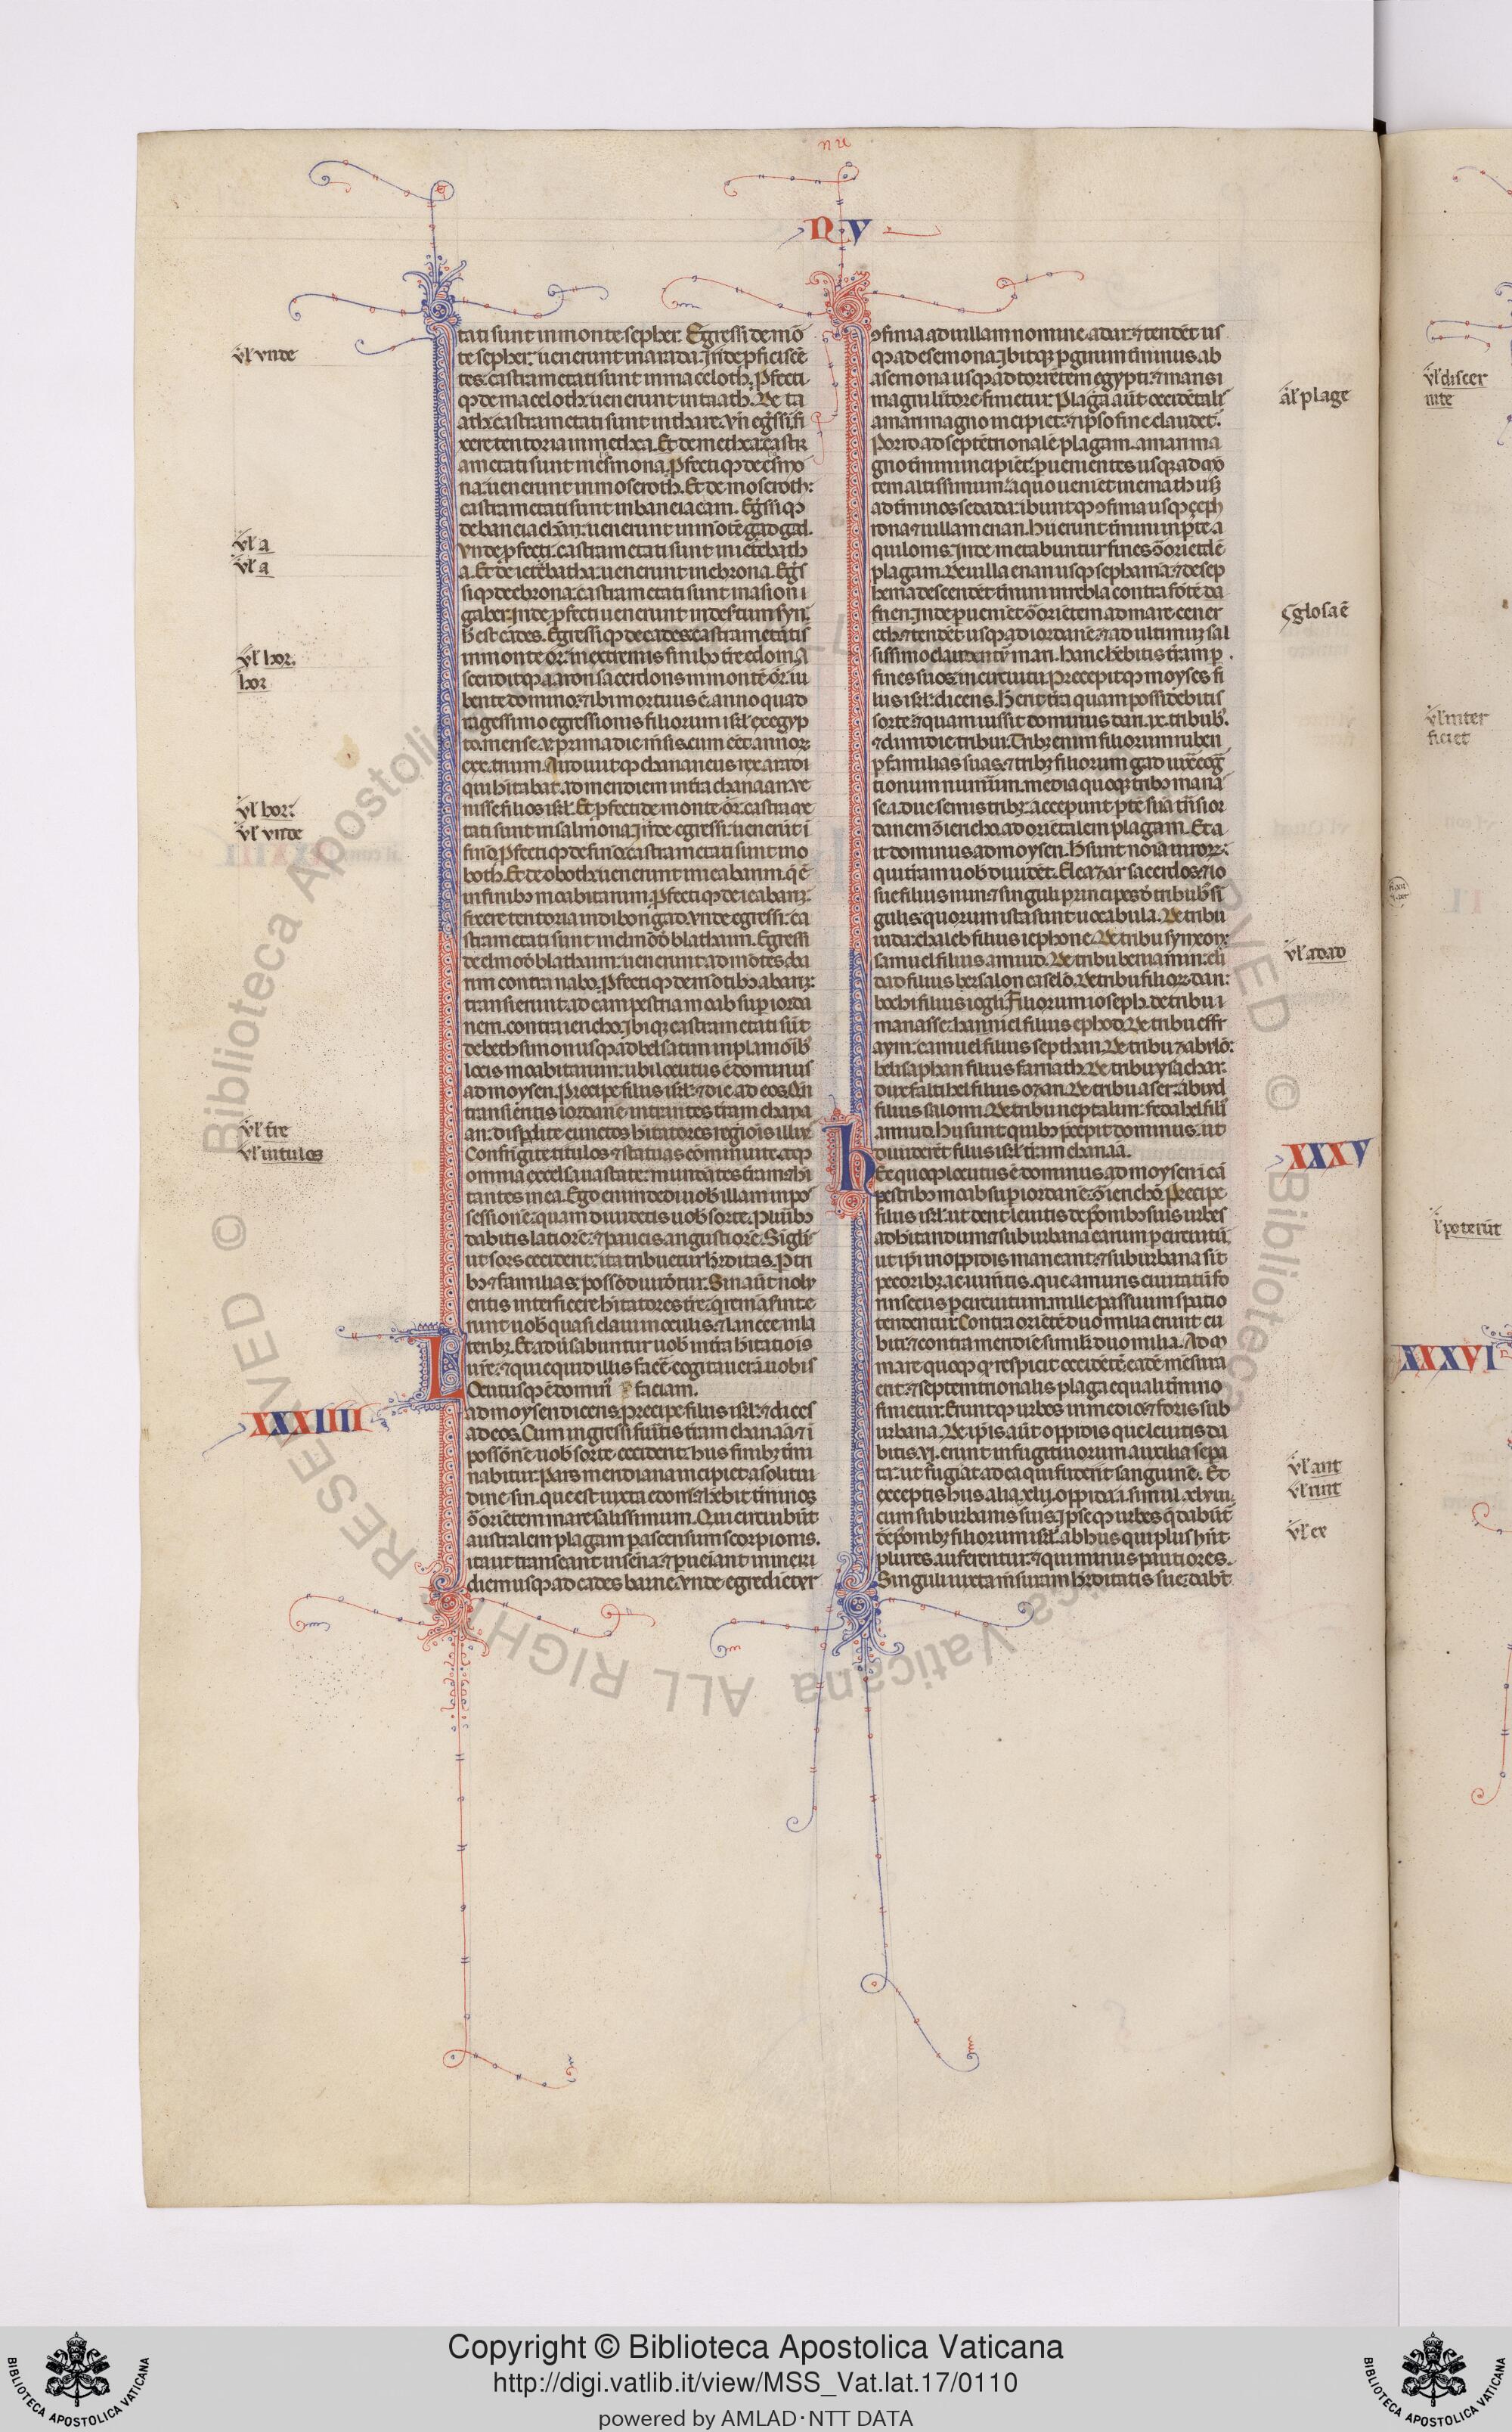 n u
N V
tati sunt in monte sepher. Egressi de mō
te sepher: uenerunt in arada. Inde ꝓficiscē
tes: castrametati sunt in maceloth. Ꝓfecti
qꝫ de maceloth: uenerunt in taath. De ta
ath: castrametati sunt in thare. Vn̄ eg̃ssi. fi
xere tentoria in methca. Et de methca: castr
ametati sunt in esmona. Ꝓfecti qꝫ de esmo
na: uenerunt in moseroth. Et de moseroth:
castrametati sunt in baneiacam. Eg̃ssi qꝫ
de baneiachan: uenerunt in mōtē gadgad.
Vnde ꝓfecti: castrametati sunt in ietebath
a. Et de ietebatha: uenerunt in ebrona. Eg̃s
si qꝫ de ebrona: castrametati sunt in asion i
gaber. Inde ꝓfecti uenerunt in desertum syn:
h̄ est cades. Egressi qꝫ de cades: castrametati s̄
in monte or: in extremis finibꝫ tr̄e edom. A
scendit qꝫ aaron sacerdos in montē or: iu
bente domino: ⁊ ibi mortuus ē: anno quad
ragessimo egressionis filiorum isrl̄ ex egyp
to: mense .v. prima die m̄sis: cum eēt annoꝝ
cxx. trium. Audiuit qꝫ chananeus rex arad i
qui habitabat ad meridiem in tr̄a chanaan: ue
nisse filios isrl̄. Et ꝓfecti de monte or: castrame
tati sunt in salmona. Inde egressi: uenerūt i
fino. Ꝓfecti qꝫ de fino: castrametati sunt in o
both. Et de oboth: uenerunt in ieabarim. q̄ ē
in finibꝫ moabitarum. Ꝓfecti qꝫ de ieabarim:
fixere tentoria in dibongad. Vnde egressi: ca
strametati sunt in elmōdeblathaim. Egressi
de elmōdeblathaim: uenerunt ad mōtes aba
rim contra nabo. Ꝓfecti qꝫ de mōtibꝫ abarim:
transierunt ad campestria moab suꝑ iorda
nem. contra iericho. Ibiqꝫ castrametati sūt
de bethsimon usqꝫ ad belsatim in planioribꝫ
locis moabitarum: ubi locutus ē dominus
ad moysen. Precipe filiis isrl̄: ⁊ dic ad eos. Qn̄
transieritis iordanē intrantes terram chana
an: disꝑdite cunctos habitatores regiōis illiꝰ.
Confringite titulos ⁊ statuas comminuite. atqꝫ
omnia excelsa uastate: mundātes tr̄am ⁊ habi
tantes in ea. Ego enim dedi uobis illam in pos
sessionē: quam diuidetis uobis sorte. Pluribꝫ
dabitis latiorē: ⁊ paucis angustiorē. Sigl̄is
ut sors ceciderit: ita tribuetur hereditas. Ꝑ tri
bꝫ ⁊ familias: possō diuidetur. Sin aūt nolu
eritis interficere habitatores tr̄e: qui remanserint e
runt uobis quasi claui in oculis: ⁊ lancee in la
teribꝫ. Et aduersabuntur uobis in tr̄a habitatiōis
uestre: ⁊ quicquid illis facere cogitaueram uobis
Locutus qꝫ ē dominus faciam.
ad moysen dicens. Precipe filiis isrl̄: ⁊ dices
ad eos. Cum ingressi fueritis terram chanaā: ⁊ i
possōnē uobis sorte ceciderit: hiis finibꝫ termi
nabitur. Pars meridiana incipiet a solitu
dine sin. que est iuxta edom: ⁊ habebit terminos
cōtra orientem mare salsissimum. Qui circuibūt
australem plagam ꝑ ascensum scorpionis.
ita ut transeant in senna: ⁊ ꝑueniant in meri
diem usqꝫ ad cades barne. Vnde egredientur
ꝯfinia ad uillam nomine adar: ⁊ tendēt us
qꝫ ad esemona. Ibitqꝫ ꝑ girum terminus ab
asemona usqꝫ ad torrentem egypti: ⁊ maris i
magni litore finietur. Plaga aūt occidētalis
a mari magno incipiet: ⁊ ipso fine claudet̄.
Porro ad septētrionalē plagam. a mari ma
gno termini incipiēt: ꝑuenientes usqꝫ ad mō
tem altissimum: a quo uenient in emath usqꝫ
ad terminos sedada: ibuntqꝫ ꝯfinia usqꝫ zeph
rona ⁊ uillam enan. Hii erunt termini in parte a
quilonis. Inde metabuntur fines cōtra orientalē
plagam. De uilla enan usqꝫ sephama: ⁊ de sep
hema descendēt termini in rebla contra fontē da
fnen: Inde ꝑuenient cōtra orientem ad mare cener
eth: ⁊ tendent usqꝫ ad iordanē: ⁊ ad ultimum sal
sissimo claudentur mari. Hanc habebitis terram ꝑ
fines suos in circuitu. Precepit qꝫ moyses fi
liis isrl̄: dicens. Hec erit terra quam possidebitis
sorte: ⁊ quam iussit dominus dari .ix. tribubꝫ.
⁊ dimidie tribui. Tribꝫ enim filiorum ruben
ꝑ familias suas: ⁊ tribꝫ filiorum gad iuxta cog
tionum numerum. media quoqꝫ tribꝫ manas
se. i. due semis tribꝫ. acceperunt partē suā trans ior
danem cōtra iericho ad orientalem plagam. Et a
it dominus ad moysen. Hec sunt nomina uiroꝝ:
qui terram uobis diuident. Eleazar sacerdos: ⁊ io
sue filius nun: ⁊ singuli principes de tribubꝫ si
gulis: quorum ista sunt uocabula. De tribu
iuda: chaleb filius iephone. De tribu symeon:
samuel filius amiud. De tribu beniamin: eli
dad filius bersalon caselon. De tribu filiorꝝ dan:
bochi filius iogli. Filiorum ioseph. de tribu i
manasse: hanniel filius ephod. De tribu effr
aym: camuel filius septhan. De tribu zabulō:
helisaphan filius farnath. De tribu ysachar:
dux faltihel filius ozan. De tribu aser: abiud
filius salomi. De tribu neptalim: fedahel filiꝰ
amiud. Hii sunt quibꝫ precepit dominus: ut
diuiderēt filiis isrl̄ terram chanaā.
Hec quoqꝫ locutus ē dominus ad moysen i cā
pestribꝫ moab suꝑ iordanē: cōtra iericho. Precipe
filiis isrl̄: ut dent leuitis de possessionibꝫ suis urbes
ad habitandum: ⁊ suburbana earum ꝑ circuitū:
ut ipsi in oppidis maneant: ⁊ suburbana sīt
pecoribꝫ ac iumentis. que a muris ciuitatū fo
rinsecus ꝑ circuitum: mille passuum spatio
tendentur. Contra orientē duo milia erunt cu
biti: ⁊ contra meridiē similiter duo milia. Ad m̄
mare quoqꝫ qd̄ respicit occidentē: eadē mensura
erit: ⁊ septentrionalis plaga equali termino
finietur. Eruntqꝫ urbes in medio: ⁊ foris sub
urbana. De ipsis aūt oppidis que leuitis da
bitis: vi. erunt in fugitiuorum auxilia sepa
ta: ut fugiat ad ea qui fuderit sanguinē. Et
exceptis hiis alia .xlij. oppida. i. simul .xlviij.
cum suburbanis suis. Ipseqꝫ urbes q̄ dabūt
de possessionibꝫ filiorum isrl̄: ab hiis qui plus habent
plures auferentur: ⁊ qui minus pautiores.
Singuli iuxta mensuram hereditatis sue: dabūt
vl̓ vnde
vl̓ a
vl̓ a
vl̓ hor.
hor
vl̓ hor:
vl̓ vnde
vl̓ tre
vl̓ titulos
XXXIIII
al̓ plage
glosa ē
vl̓ adad
XXXV
vl̓ ant
vl̓ runt
vl̓ ex
vl̓ discer
nite
vl̓ inter
ficiet
l̓ poterūt
XXXVI
© Biblioteca Apostolica Vaticana ALL RIGHTS RESERVED
Copyright © Biblioteca Apostolica Vaticana
http://digi.vatlib.it/view/MSS_Vat.lat.17/0110
powered by AMLAD·NTT DATA
BIBLIOTECA APOSTOLICA VATICANA
BIBLIOTECA APOSTOLICA VATICANA